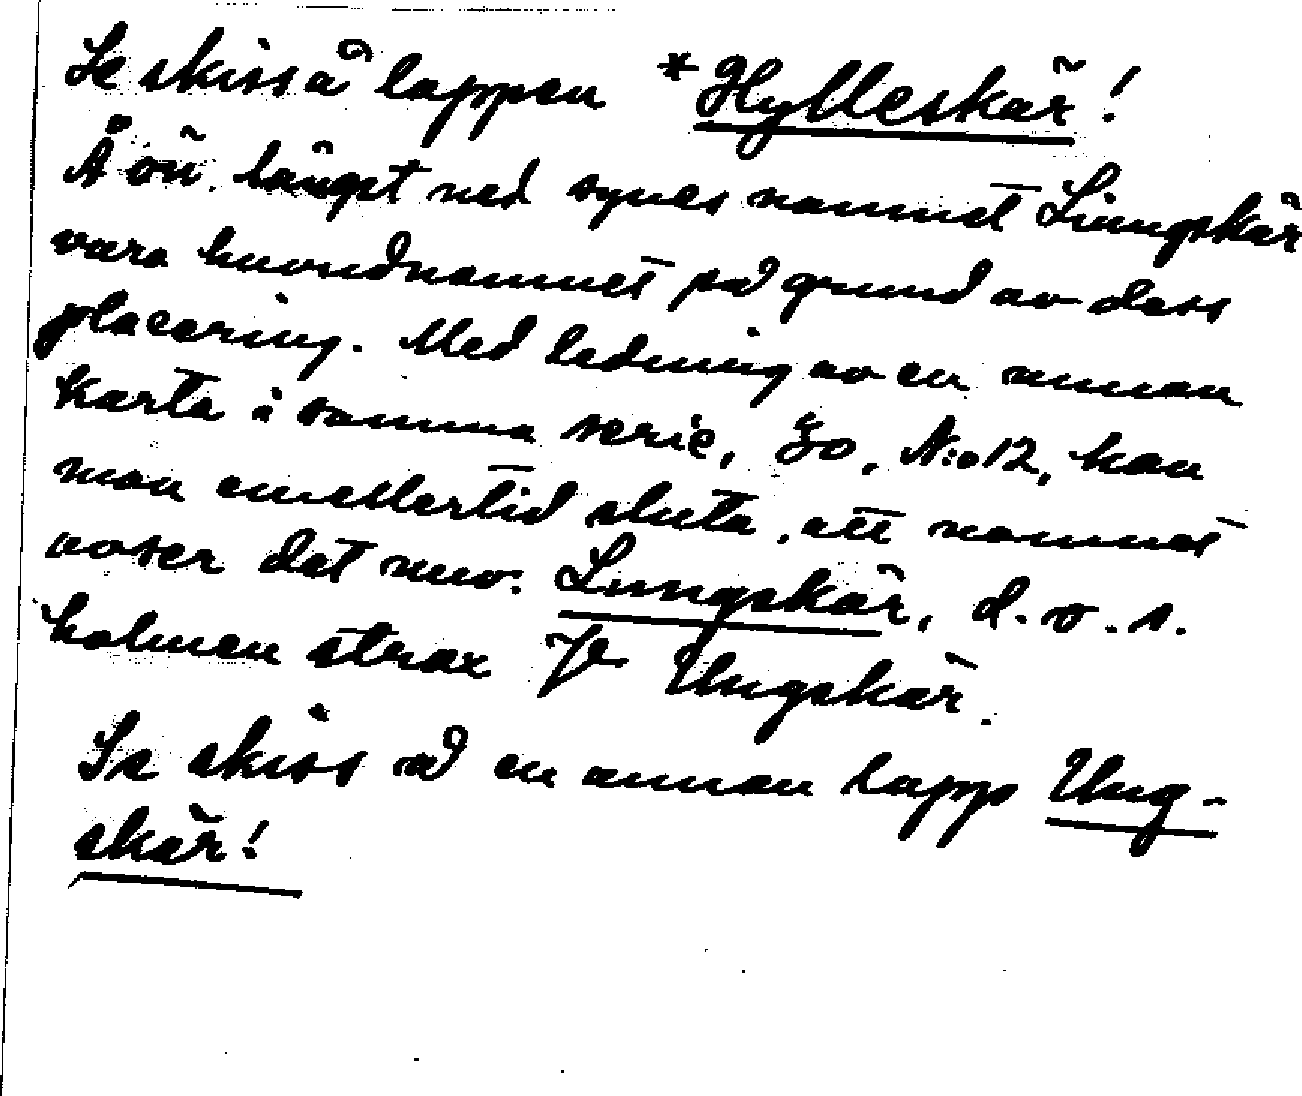 Se skiss å lappen *Hylleskär!
Å ön längst ned synes namnet Liungskär
vara huvudnamnet på grund av dess
placering. Med ledning av en annan
karta i samma serie, Go, N:o 12, kan
man emellertid sluta, att namnet
avser det nuv. Lungskär, d. v. s.
holmen strax Ungskär.
Se skiss å en annan lapp Ung-
skär!